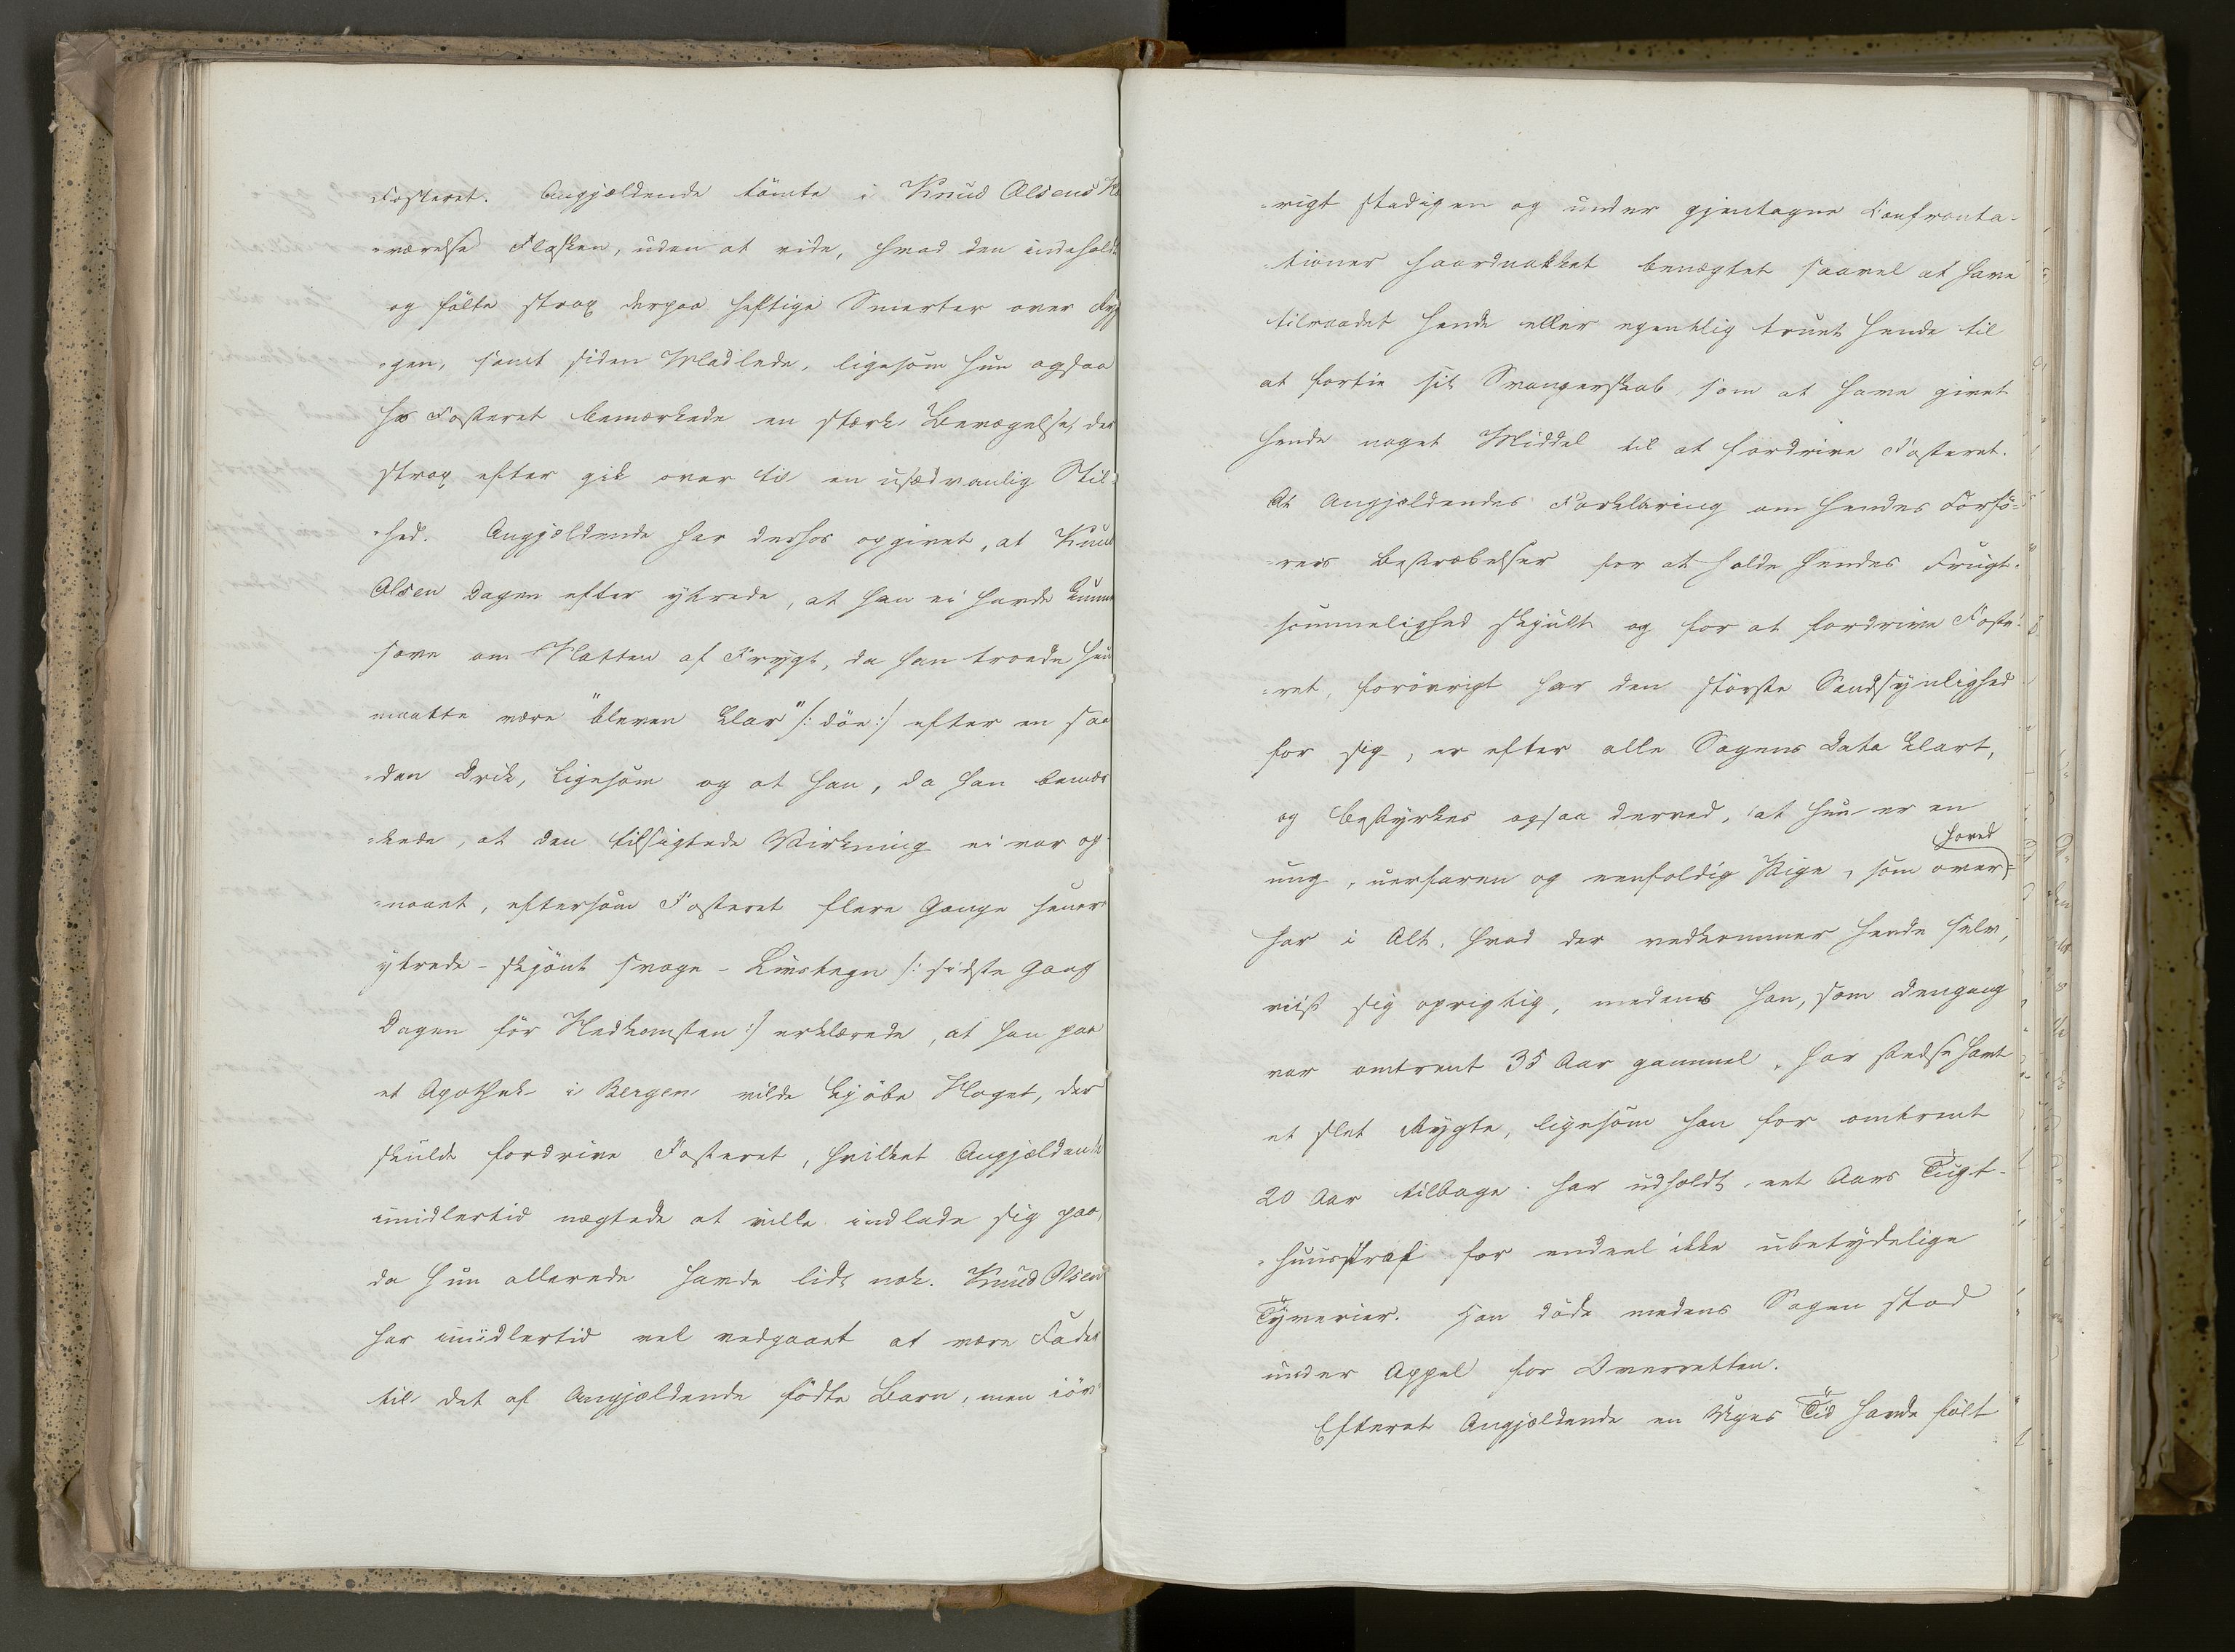 Fosteret. Angjældende tömte i Knud Olsens
=værelse Flasken, uden at vide, hvad den indeholdt
og fölte strax derpaa heftige Smerter over Ryg
=gen, samt siden Madlede, ligesom hun ogsaa
hos Fosteret bemærkede en stærk Bevægelse, der
strax efter gik over til en usædvanlig Stil=
=hed. Angjældende har derhos opgivet, at Knud
Olsen Dagen efter ytrede, at han ei havde kunnet
sove om Natten af Frygt, da han troede hun
maatte være "bleven klar" /: död :/ efter en saa
=dan Drik, ligesom og at han, da han bemær
=kede, at den tilsigtede Virkning ei var op=
=naaet, eftersom Fosteret flere Gange senere
ytrede - skjönt svage - Livstegn /: sidste Gang
Dagen för Nedkomsten :/ erklærede, at han paa
et Apothek i Bergen vilde kjöbe Noget, der
skulde fordrive Fosteret, hvilket Angjældende
imidlertid nægtede at ville indlade sig paa,
da hun allerede havde lidt nok. Knud Olsen
har imidlertid vel vedgaaet at være Fader
til det af Angjældende födte Barn, men iöv
=rigt stadigen og under gjentagne Confronta=
=tioner haardnakket benægtet saavel at have
tilraadet hende eller egentlig truet hende til
at fortie sit Svangerskab, som at have givet
hende noget Middel til at fordrive Fosteret.
At Angjældendes Forklaring om hendes Forfö=
=rers Bestræbelser for at holde hendes Frugt=
=sommelighed skjult og for at fordrive Foste=
=ret, forövrigt har den störste Sandsynlighed
for sig, er efter alle Sagens Data klart,
og bestyrkes ogsaa derved, at hun er en
hoved
ung, uerfaren og eenfoldig Pige, som over=
har i Alt, hvad der vedkommer hende selv,
viist sig oprigtig, medens han, som dengang
var omtrent 35 Aar gammel, har stedse havt
et slet Rygte, ligesom han for omtrent
20 Aar tilbage har udholdt eet Aars Tugt=
=huusstraf for endeel ikke ubetydelige
Tyverier. Han döde medens Sagen stod
under Appel for Overretten.
Efterat Angjældende en Uges Tid havde fölt